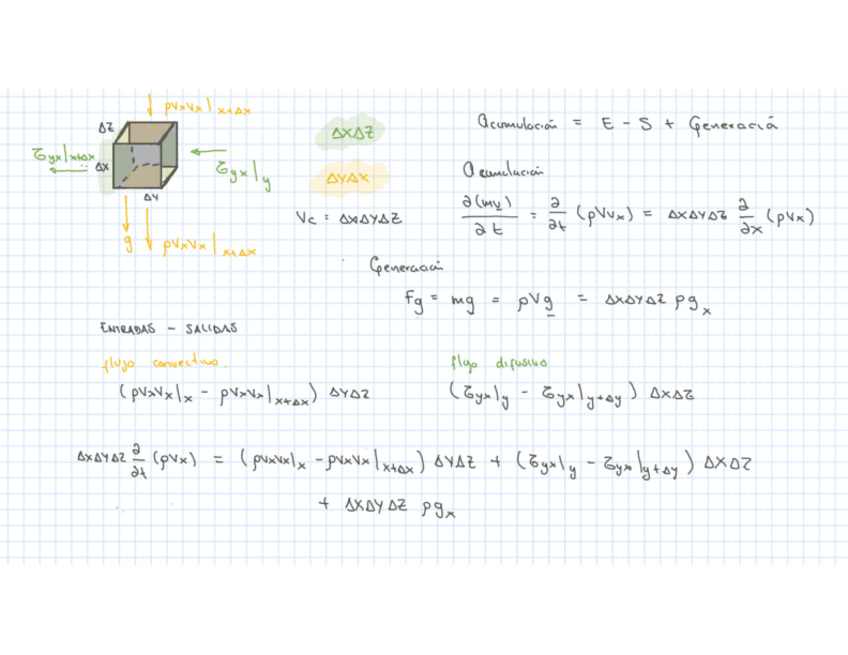 ρVxVx|x+Δx
ΔZ
τyx|x+Δx
Δx
τyx|y
Δy
g
ρVxVx|x+Δx
ΔxΔz
ΔyΔx
Vc = ΔxΔyΔz
Acumulación = E - S + Generació
Acumulación
∂(mv)/∂t = ∂/∂t (ρVvx) = ΔxΔyΔz ∂/∂x (ρVx)
Generación
Fg = mg = ρVg = ΔxΔyΔz ρgx
ENTRADAS - SALIDAS
flujo convectivo.
(ρVxVx|x - ρVxVx|x+Δx) ΔyΔz
flujo difusivo
(τyx|y - τyx|y+Δy) ΔxΔz
ΔxΔyΔz ∂/∂t (ρVx) = (ρVxVx|x - ρVxVx|x+Δx) ΔyΔz + (τyx|y - τyx|y+Δy) ΔxΔz
+ ΔxΔyΔz ρgx